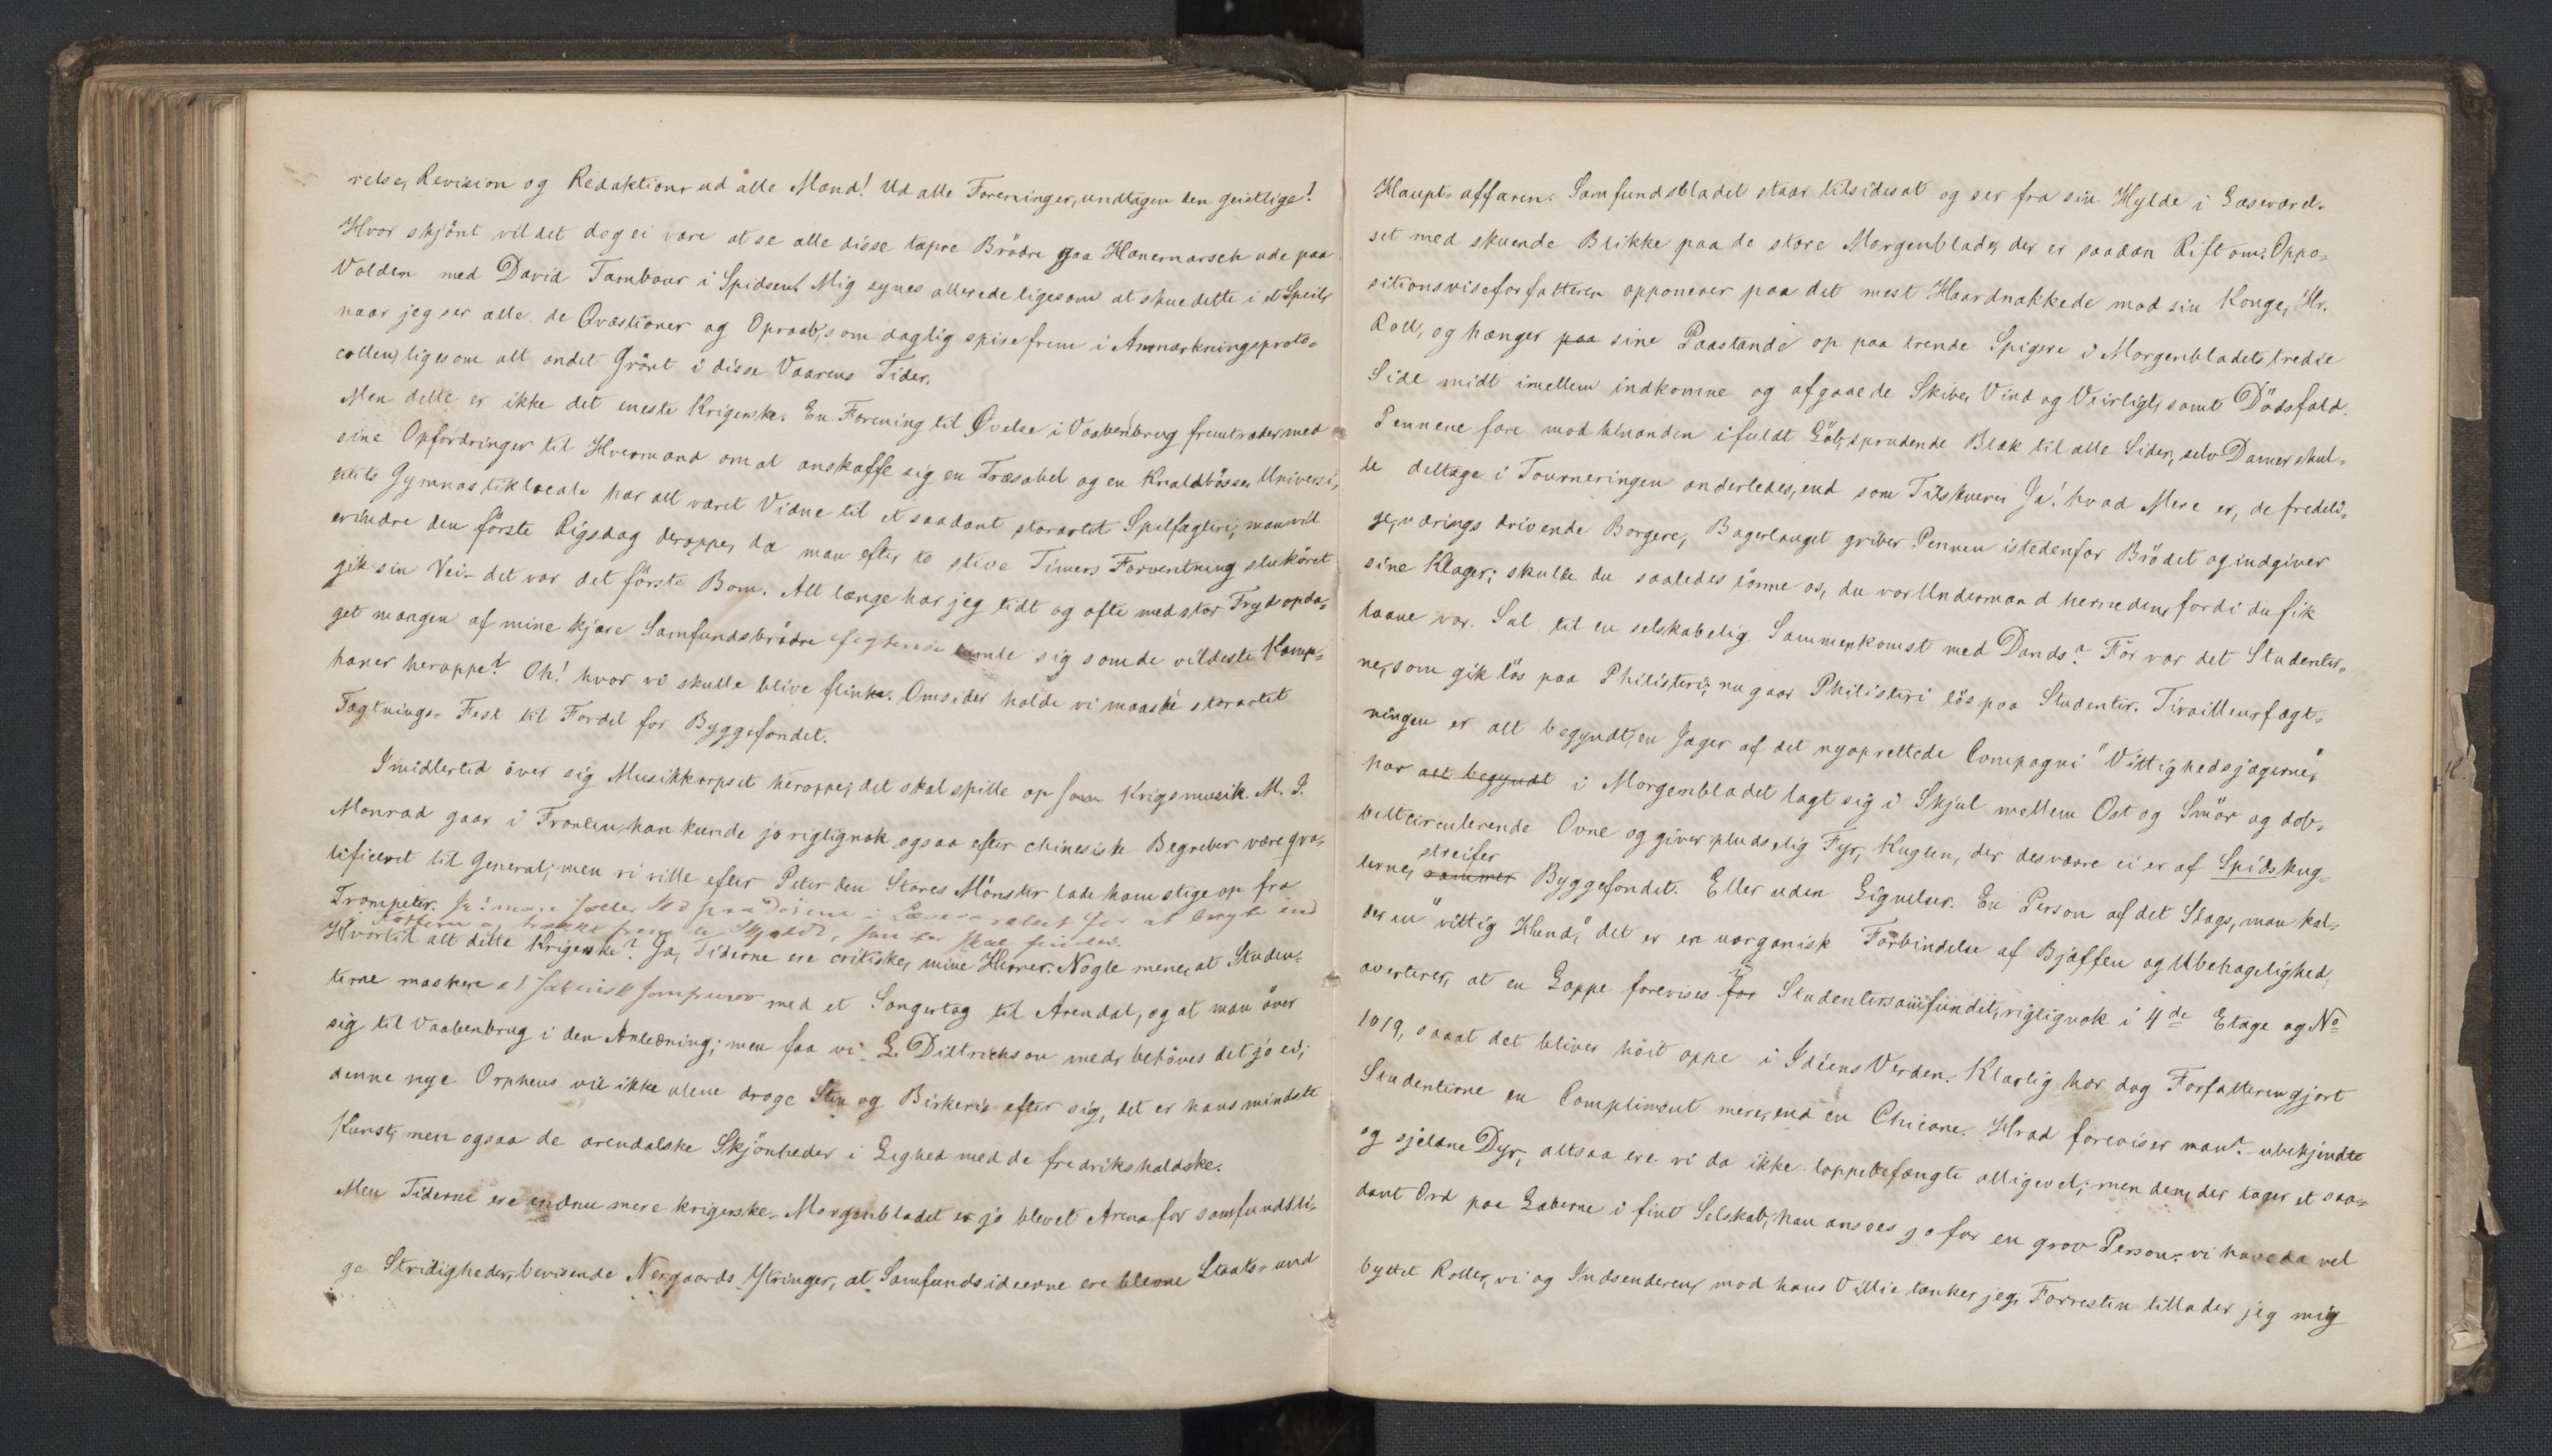 relse, Revision og Redaktion, ud alle Mænd! Ud alle Foreninger, undtagen den geistlige!
Hvor skjönt vil det dog ei være at se alle disse tapre Brödre gaa Hanemarsch ude paa
Volden med David Tambour i Spidsen! Mig synes allerede ligesom at skue dette i et Speil,
naar jeg ser alle de Qvæstioner og Opraab, som daglig spire frem i Anmærkningsproto-
collen, ligesom alt andet Grönt i disse Vaarens Tider.
Men dette er ikke det eneste Krigerske. En Forening til Øvelse i Vaabenbrug fremtræder med
sine Opfordringer til Hvermand om at anskaffe sig en Træsabel og en Knaldbösse, Universi-
tetets Gymnastiklocale har alt været Vidne til et saadant storartet Spilfægteri; man vil
erindre den förste Rigsdag deroppe, da man efter to stive Timers Forventning sluköret
gik sin Vei - det var det förste Bom. Alt længe har jeg tidt og ofte med stor Fryd opda-
get mangen af mine kjære Samfundsbrödre fegtende tumle sig som de vildeste Kamp-
haner heroppe? Oh! hvor vi skulle blive flinke. Omsider holde vi maaské storartet
Fægtnings-Fest til Fordel for Byggefondet.
Imidlertid över sig Musikkorpset heroppe; det skal spille op som Krigsmusik. M. J.
Monrad gaar i Fronten, han kunde jo rigtignok ogsaa efter chinesiske Begreber være qva-
lificeret til General; men vi ville efter Peter den Stores Mönster lade ham stige op fra
Trompeter. Ja! man
Hvortil alt dette Krigerske? Ja, Tiderne ere critiske, mine Herrer. Nogle mene, at Studen-
terne maskere et sabinsk Jomfrurov med et Sangertog til Arendal, og at man över
sig til Vaabenbrug i den Anledning; men faa vi L. Dittrichson med, behöves det jo ei;
denne nye Orpheus vil ikke alene drage Sten og Birkeris efter sig, det er hans mindste
Kunst, men ogsaa de arendalske Skjönheder i Lighed med de fredrikshaldske.
Men Tiderne ere endnu mere krigerske. Morgenbladet er jo blevet Arena for samfundsli-
ge Stridigheder, bevisende Nergaards Ytringer, at Samfundsideerne ere blevne Staats- und
Haupt-affären. Samfundsbladet staar tilsidesat og ser fra sin Hylde i Læseværel-
set med skuende Blikke paa de store Morgenblade, der er saadan Rift om. Oppo-
sitionsviseforfatteren opponerer paa det mest Haardnakkede mod sin Konge, Hr.
Roll, og hænger paa sine Paastande op paa trende Spigere i Morgenbladets tredie
Side midt imellem indkomne og afgaaede Skibe, Vind og Veirligt, samt Dödsfald.
Pennene fare mod hinanden i fuldt Löb, sprudende Blæk til alle Sider, selv Damer skul-
le deltage i Tourneringen anderledes, end som Tilskuere. Ja! hvad Mere er, de fredeli-
ge, nærings drivende Borgere, Bagerlauget griber Pennen istedenfor Brödet og indgiver
sine Klager; skulle du saaledes lönne os, du vor Undermand hernedenfordi du fik
laane vor Sal til en selskabelig Sammenkomst med Dands? För var det Studenter-
ne, som gik lös paa Philisteri; nu gaar Philisteri lös paa Studenter. Tirailleurfægt-
ningen er alt begyndt, en Jæger af det nyoprettede Compagni "Vittighedsjægerne,"
har alt begyndt i Morgenbladet lagt sig i Skjul mellem Ost og Smör og dob-
beltcirculerende Ovne og giver pludselig Fyr, Kuglen, der desværre ei er af Spidskug-
lerne, streifer rammer Byggefondet. Eller uden Lignelser. En Person af det Slags, man kal-
der en "vittig Hund," det er en uorganisk Forbindelse af Bjæffen og Ubehagelighed,
averterer, at en Loppe forevises for i Studentersamfundet, rigtignok i 4de Etage og No
1019, saaat det bliver höit oppe i Idéens Verden. Klarlig har dog Forfatteren gjort
Studenterne en Compliment mere, end en Chicane. Hvad foreviser man? - ubekjendte
og sjeldne Dyr, altsaa ere vi da ikke loppebefængte alligevel; men den, der tager et saa-
dant Ord paa Læberne i fint Selskab, han ansees jo for en grov Person: vi have da vel
byttet Roller, vi og Indsenderen, mod hans Villie tænker jeg. Forresten tillader jeg mig